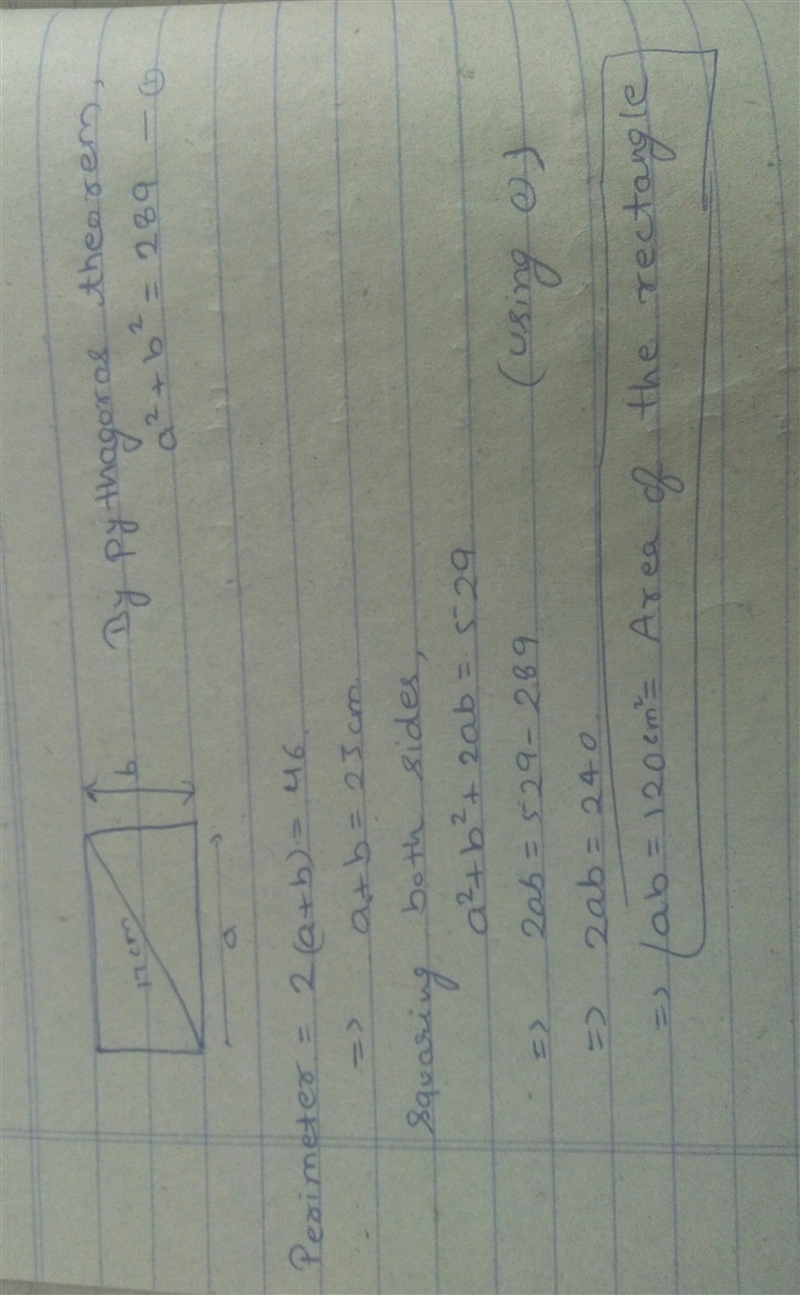 17cm
b
a
By Pythagoras theorem,
a² + b² = 289 — ①
Perimeter = 2(a+b) = 46
=> a+b = 23cm
Squaring both sides,
a² + b² + 2ab = 529
=> 2ab = 529 - 289 (using ①)
=> 2ab = 240
=> ab = 120cm² = Area of the rectangle